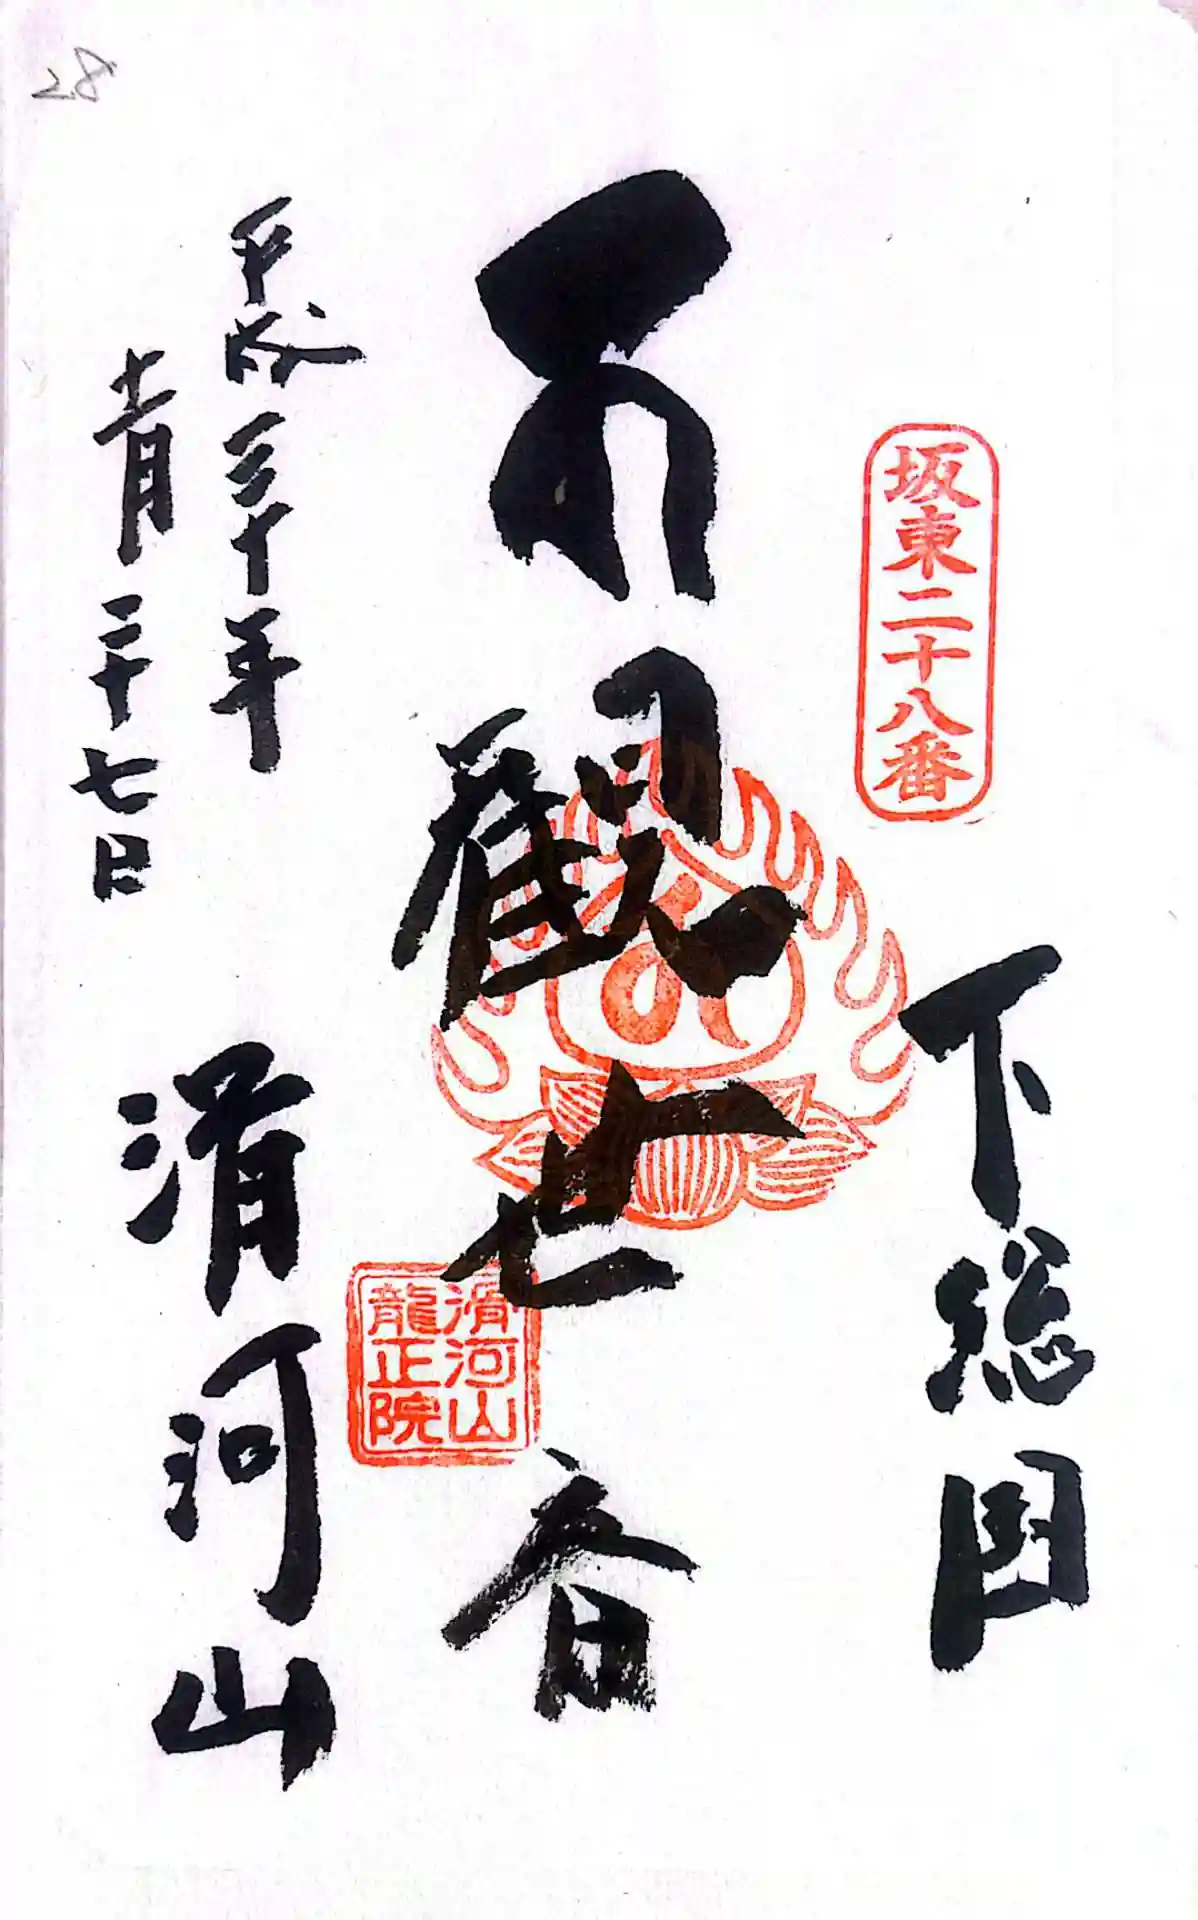 坂東二十八番
下総国
観世音
滑河山
龍正院
平成三十年
十一月二十七日
滑河山
28